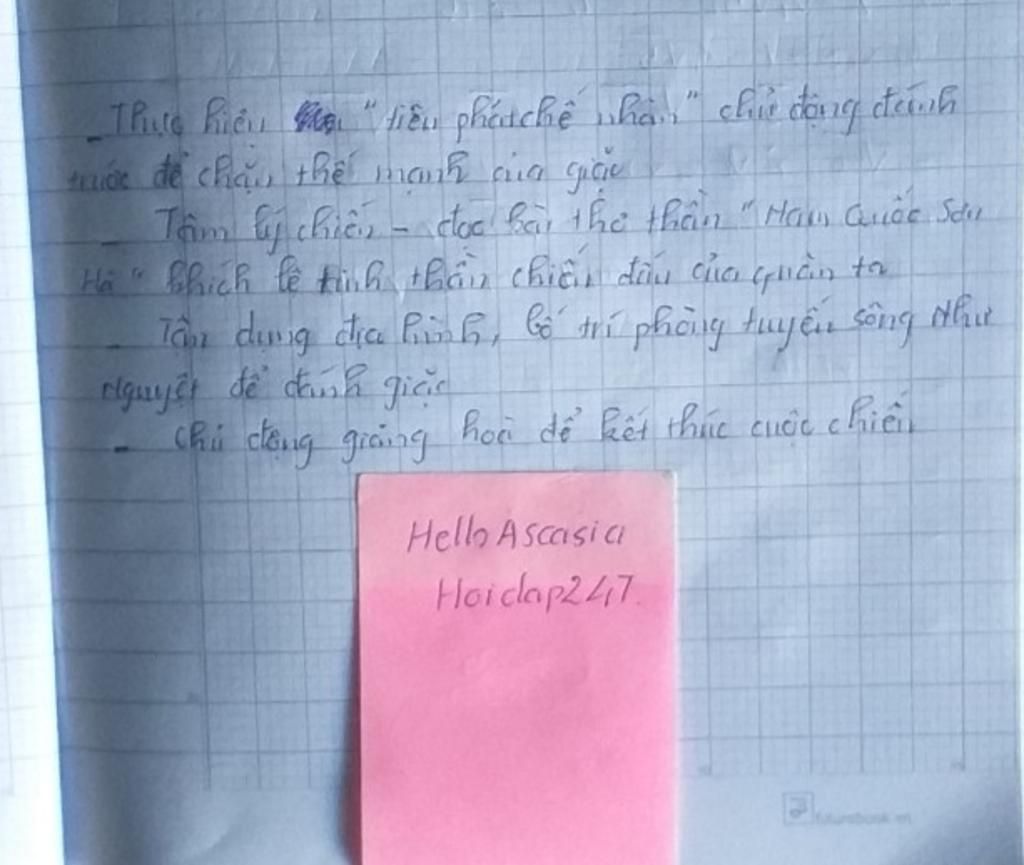 - Thực hiện "tiên phát chế nhân" chủ động đánh
trước để chặn thế mạnh của giặc
- Tâm lý chiến - đọc bài thơ thần "Nam Quốc Sơn
Hà" khích lệ tinh thần chiến đấu của quân ta
- Tận dụng địa hình, bố trí phòng tuyến sông Như
Nguyệt để đánh giặc
- Chủ động giảng hoà để kết thúc cuộc chiến
Hello Ascasia
Hoidap247.